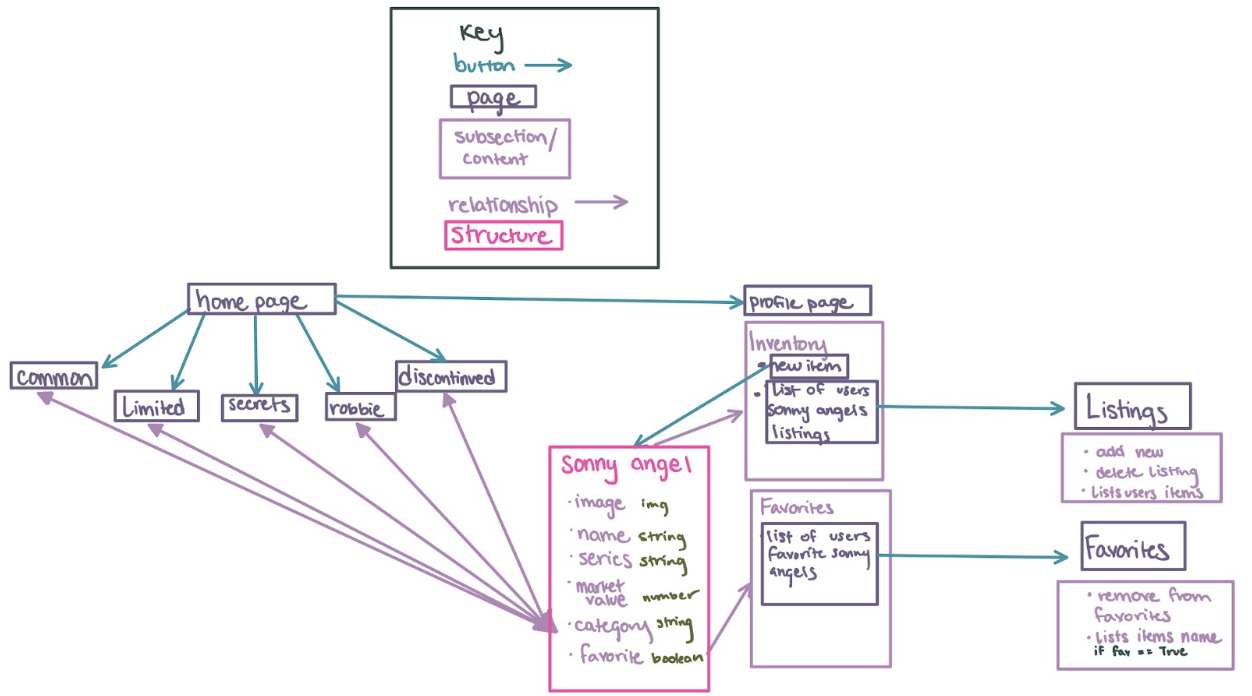 Key
button
page
subsection/
content
relationship
Structure
home page
profile page
common
Limited
secrets
robbie
discontinued
Inventory
• new item
• list of users
sonny angels
listings
Listings
• add new
• delete listing
• Lists users items
Sonny angel
• image img
• name string
• series string
• market
value number
• category string
• favorite boolean
Favorites
• list of users
favorite sonny
angels
Favorites
• remove from
favorites
• Lists items name
if fav == True